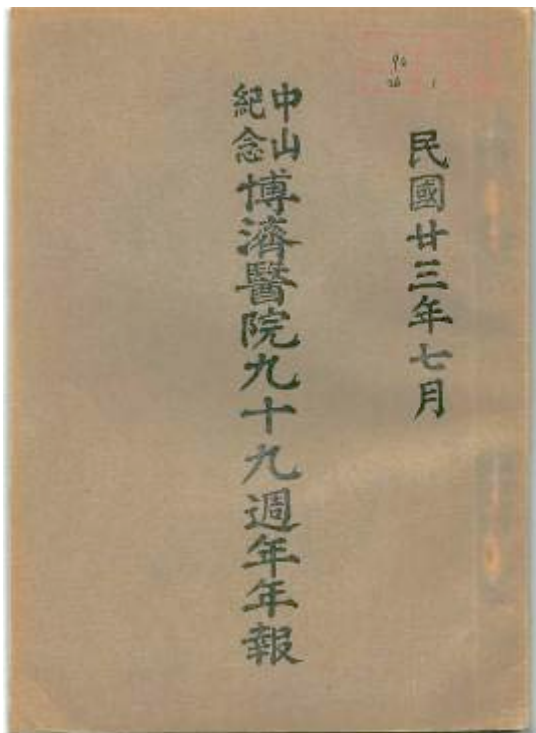 民國廿三年七月
中山紀念博濟醫院九十九週年年報